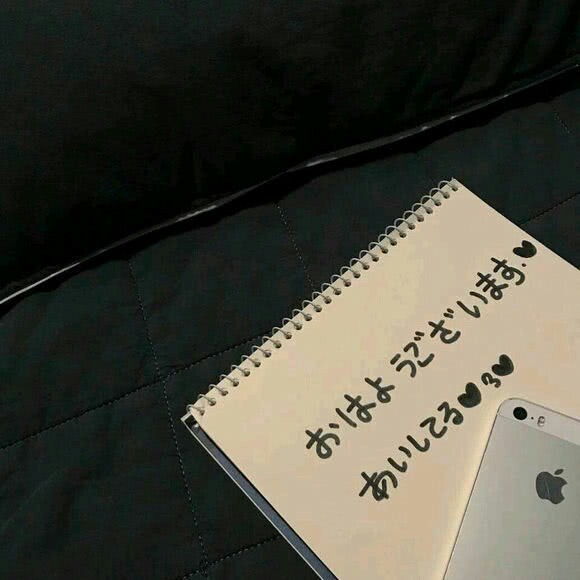 おはようございます.♥
あいしてる♥３♥